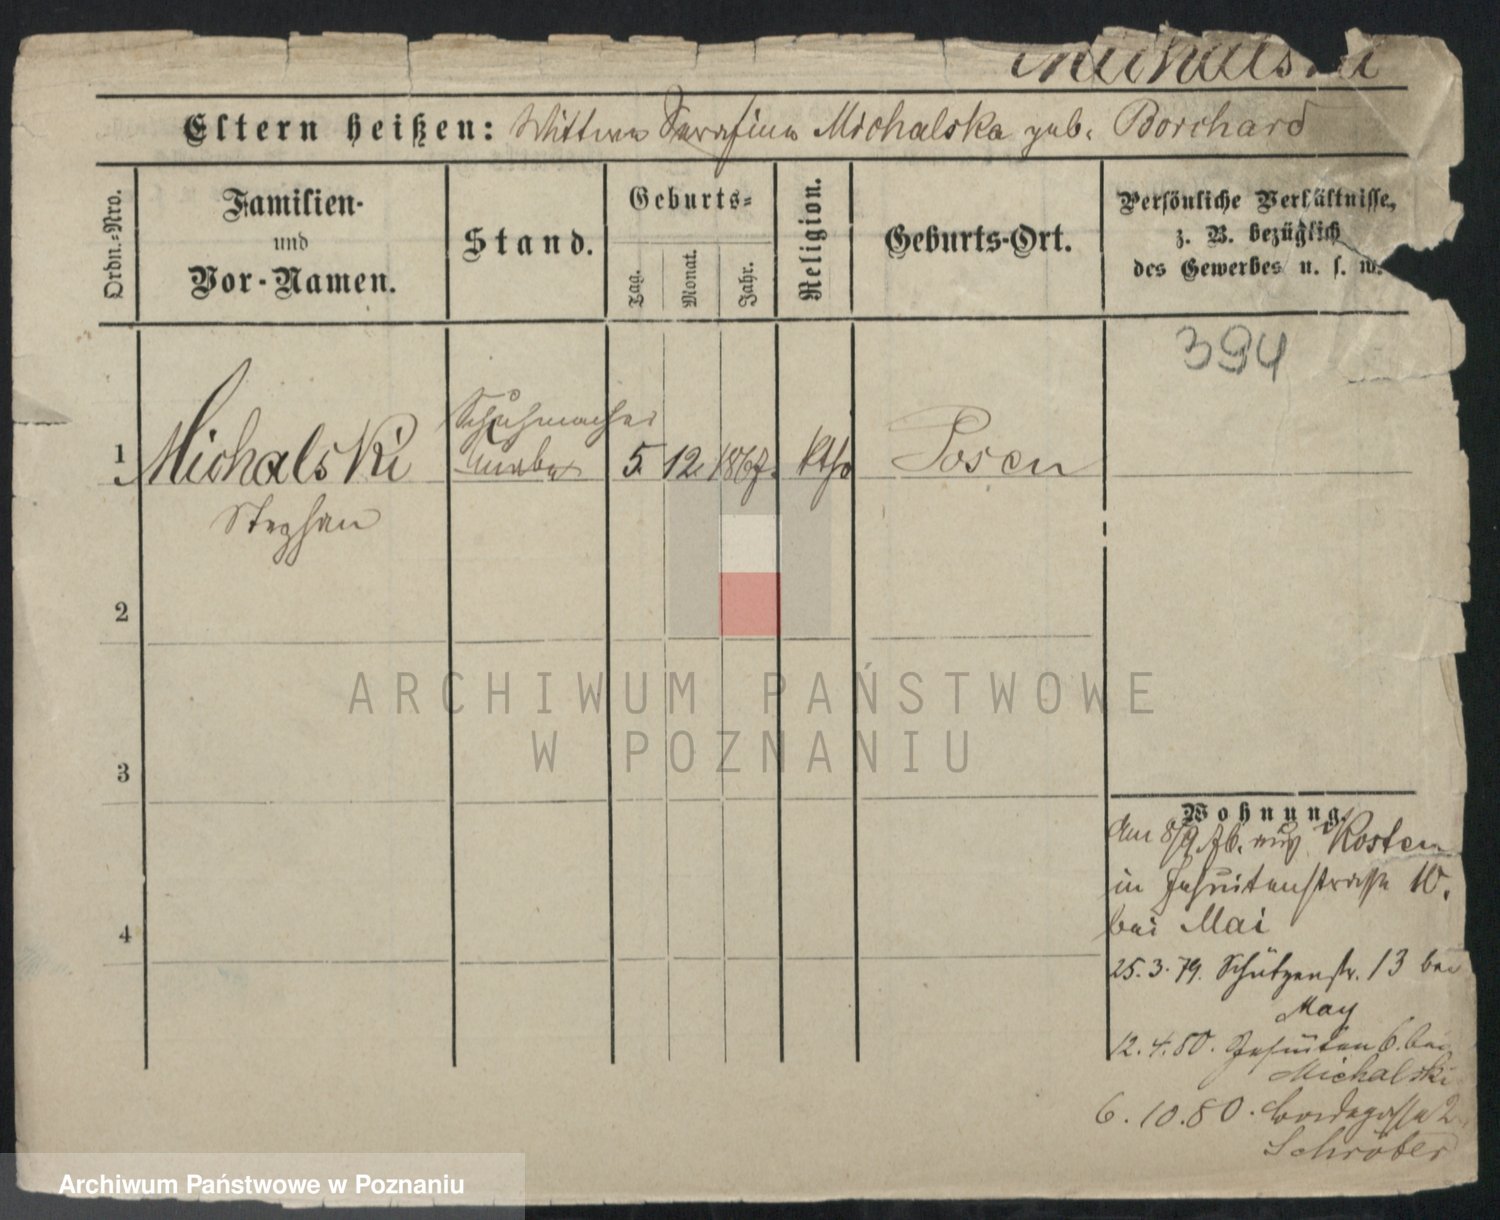 Michalski
Eltern heißen: Wittwe Serafina Michalska geb. Borchard
Ordn.-Nro.
Familien-
und
Vor-Namen.
Stand.
Geburts-
Tag.
Monat.
Jahr.
Religion.
Geburts-Ort.
Persönliche Verhältnisse,
z. B. bezüglich
des Gewerbes u. s. w.
394
1 Michalski Schuhmacher 5. 12. 1867. kth. Posen
Stephan
2
3
4
Wohnung.
Am 8/9 76. aus Kosten
in Jesuitenstrasse 10.
bei Mai
25.3.79. Schützenstr. 13 bei
May
12.4.80. Jesuiten 6. bei
Michalski
6.10.80. 2
Schröter
ARCHIWUM PAŃSTWOWE
W POZNANIU
Archiwum Państwowe w Poznaniu